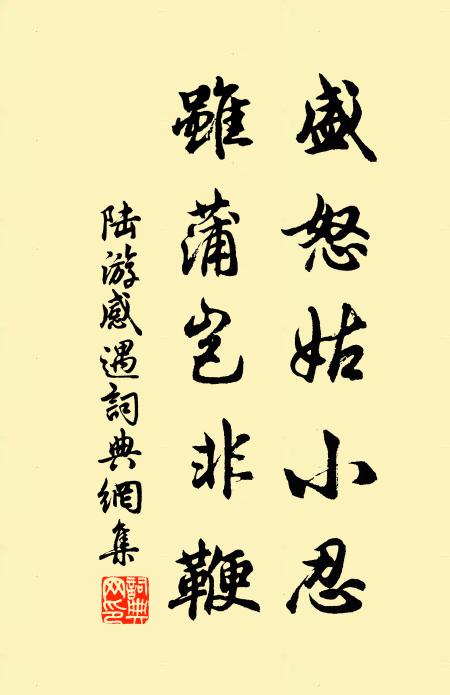 盛怒姑小忍
雖蒲豈非鞭
陸游感遇詞典網集
詞典網印